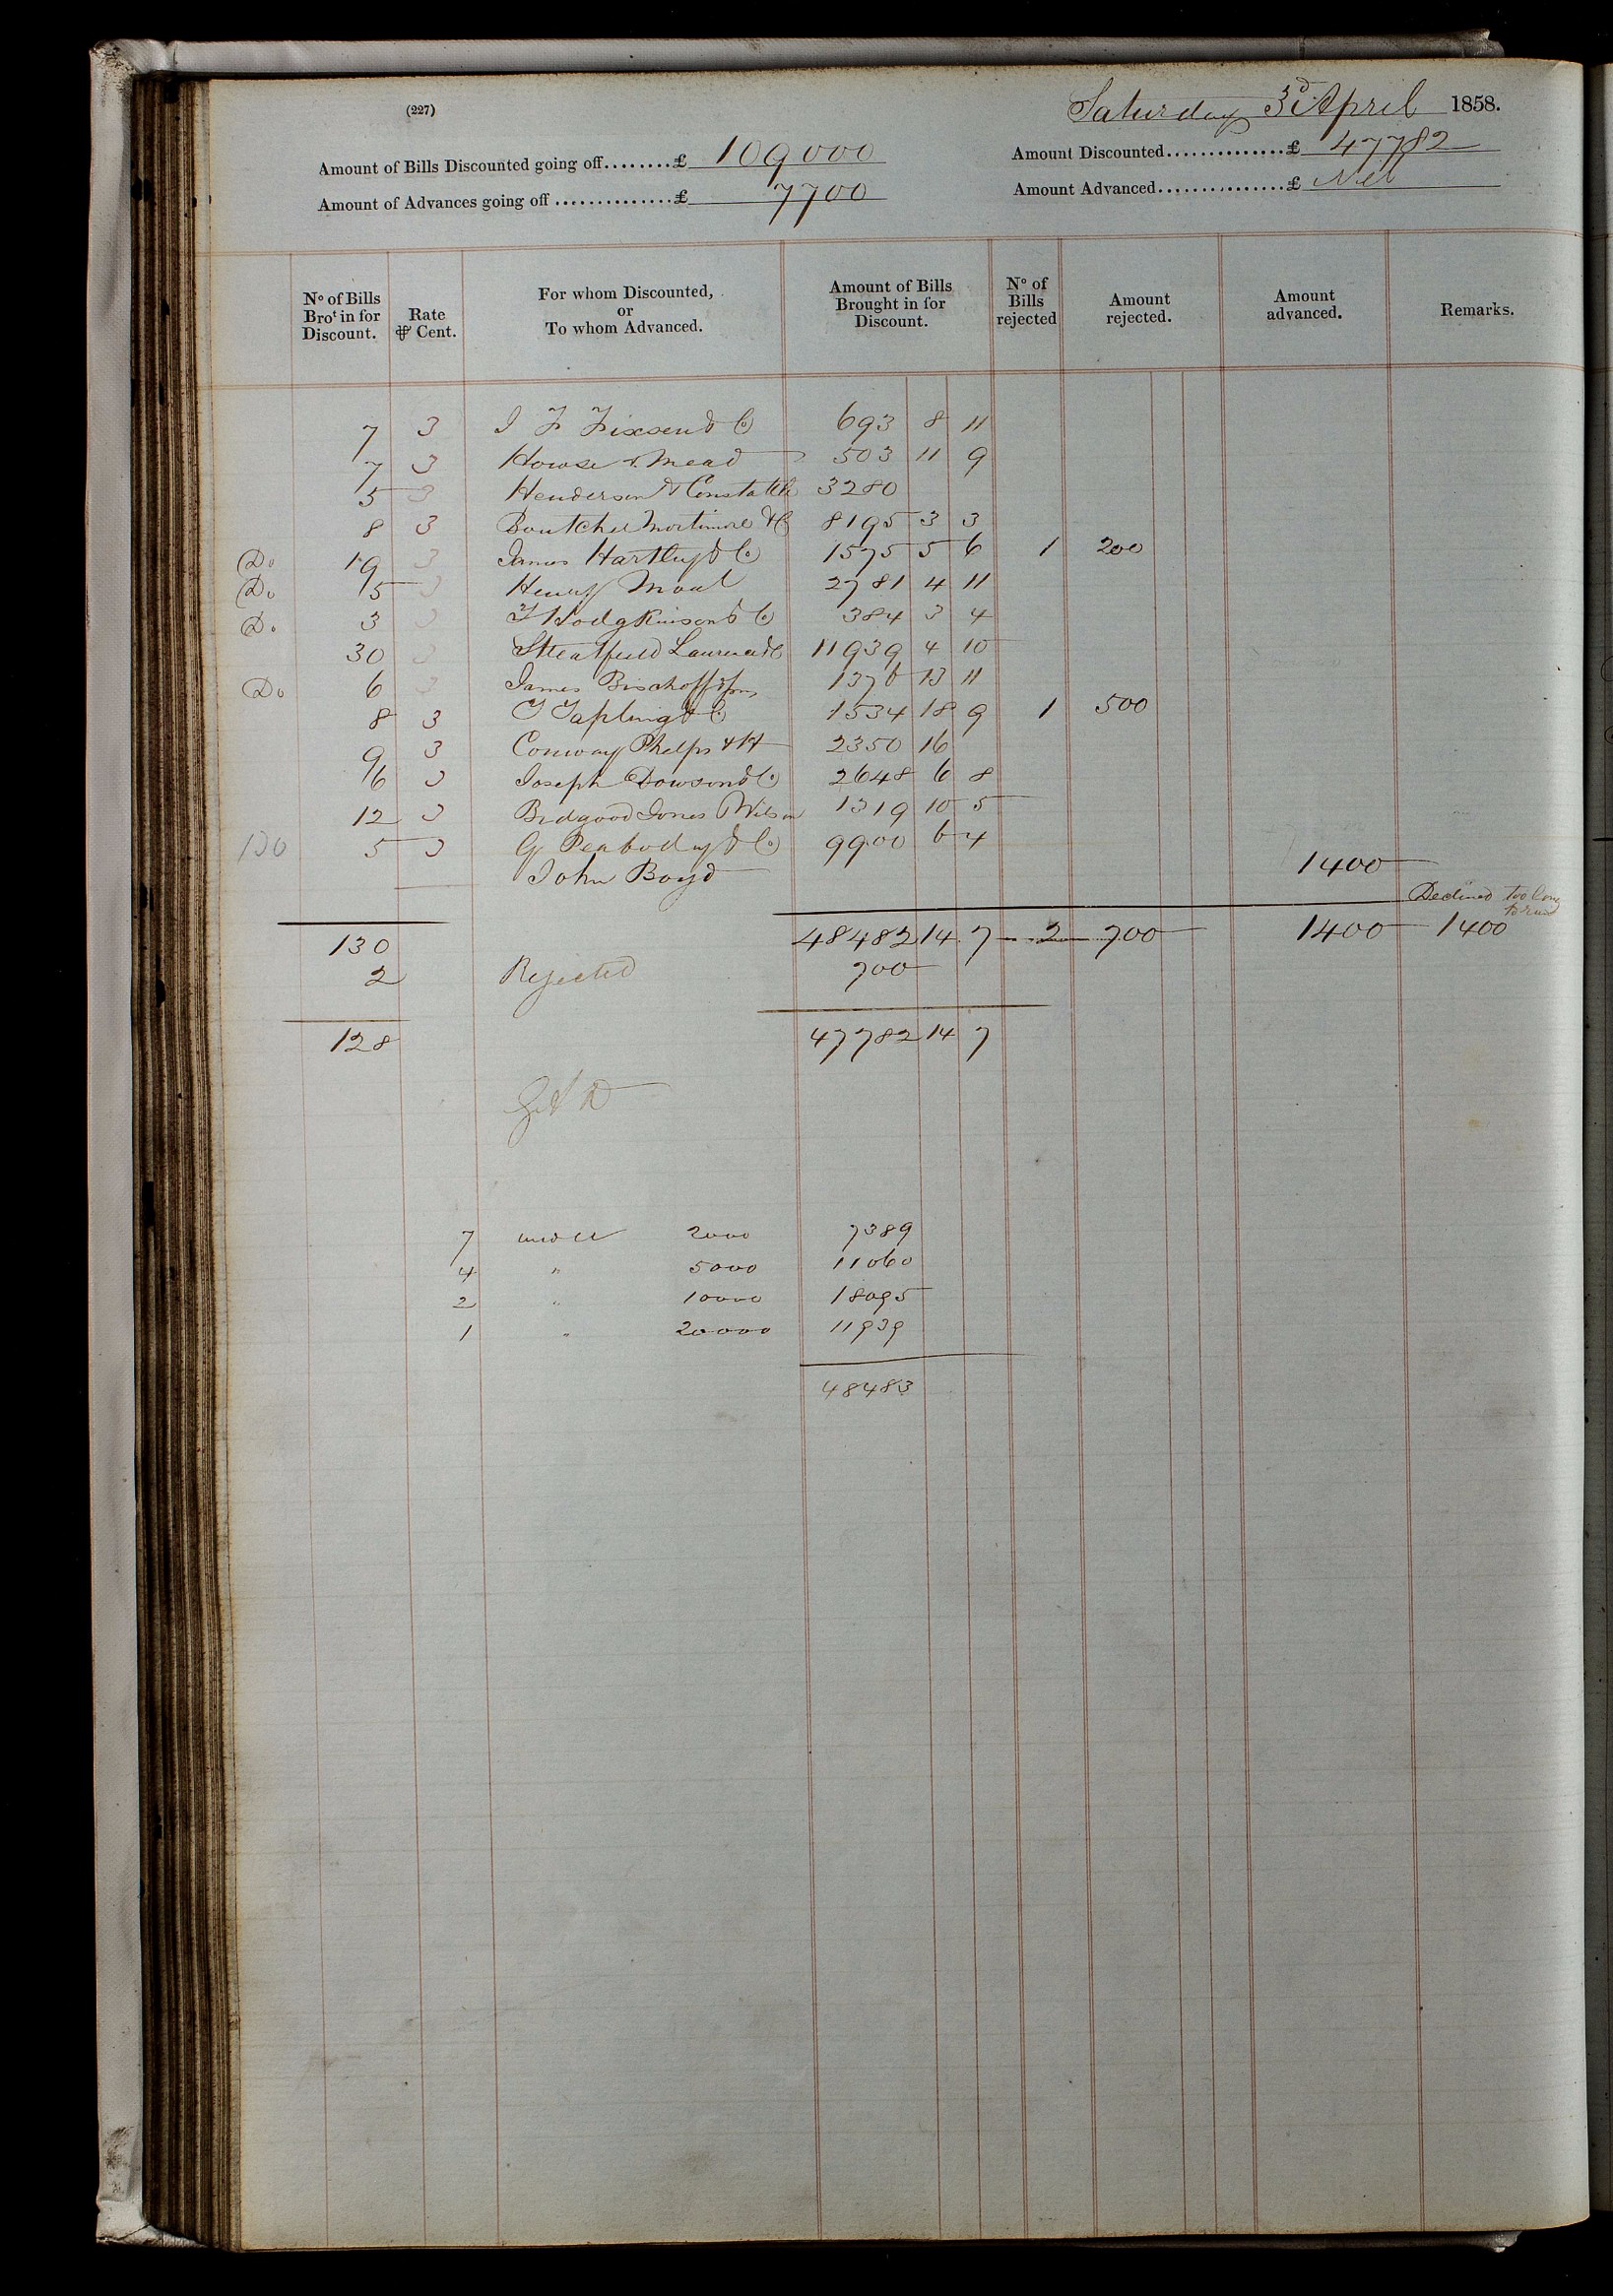 (227) Saturday 3d April 1858.
Amount of Bills Discounted going off........£ 109000 Amount Discounted..............£ 47782
Amount of Advances going off ..............£ 7700 Amount Advanced...............£ Nil
No of Bills Brot in for Discount. Rate ⅌ Cent. For whom Discounted, or To whom Advanced. Amount of Bills Brought in for Discount. No of Bills rejected Amount rejected. Amount advanced. Remarks.
7 3 J F Fixsen & Co 693 8 11
7 3 Howse & Mead 503 11 9
5 3 Henderson & Constable 3280
8 3 Boutcher Mortimore & Co 8195 3 3
Do 19 3 James Hartley & Co 1575 5 6 1 200
Do 15 3 Henry Moul 2781 4 11
Do 3 3 T Hodgkinson & Co 384 3 4
30 3 Streatfeild Laurence & Co 11939 4 10
Do 6 3 James Bischoff & Son 1376 13 11
8 3 T Tapling & Co 1534 18 9 1 500
9 3 Conway Phelps & H 2350 16
6 3 Joseph Dowson & Co 2648 6 8
12 3 Bidgood Jones Wilson 1319 10 5
130 5 3 G Peabody & Co 9900 6 4
John Boyd 1400
Declined too long to run
130 48482 14 7 2 700 1400 1400
2 Rejected 700
128 47782 14 7
7 under 2000 7389
4 " 5000 11060
2 " 10000 18095
1 " 20000 11939
48483